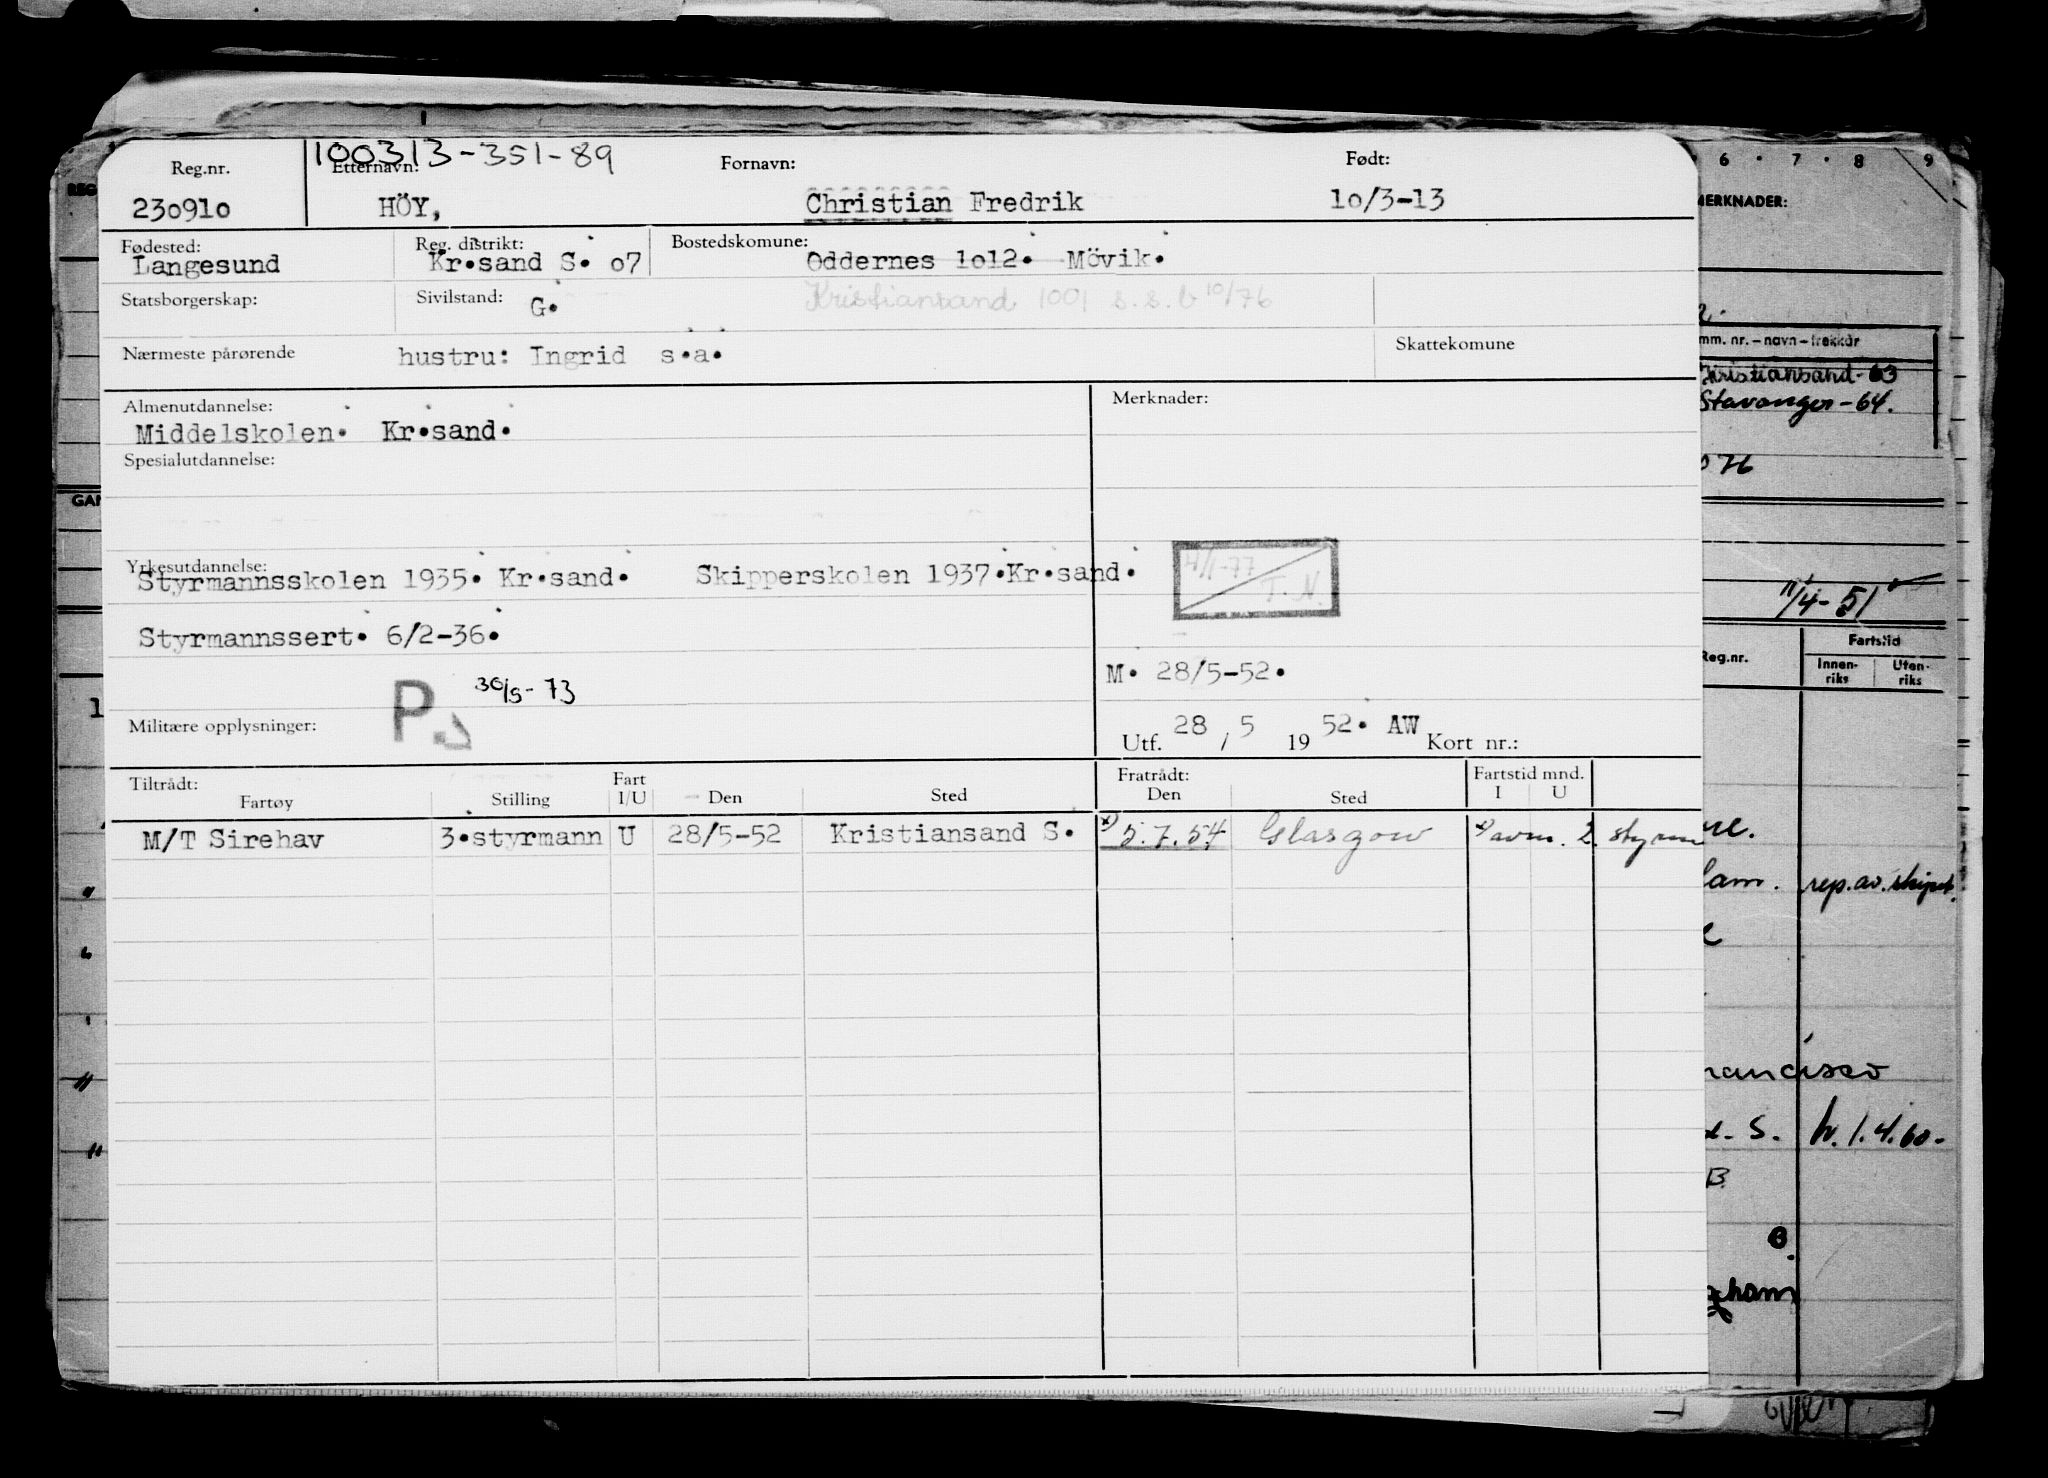 Reg.nr. Etternavn: 100313-351-89 Fornavn: Født:
230910 HÖY, Christian Fredrik 10/3-13
Fødested: Reg. distrikt: Bostedskomune:
Langesund Kr.sand S. 07 Oddernes 1012. Mövik.
Statsborgerskap: Sivilstand: G. Kristiansand 1001 s.s.b 10/76
Nærmeste pårørende hustru: Ingrid s.a. Skattekomune
Almenutdannelse: Merknader:
Middelskolen. Kr.sand.
Spesialutdannelse:
Yrkesutdannelse:
Styrmannsskolen 1935. Kr.sand. Skipperskolen 1937.Kr.sand.
T.N.
Styrmannssert. 6/2-36.
M. 28/5-52.
P. 30/5-73
Militære opplysninger: Utf. 28 / 5 19 52. AW Kort nr.:
Tiltrådt: Fart Fratrådt: Fartstid mnd.
Fartøy Stilling I/U Den Sted Den Sted I U
M/T Sirehav 3.styrmann U 28/5-52 Kristiansand S. x) 5.7.54 Glasgow x) avm. 2. styrm
6 7 8 9
MERKNADER:
mm. nr. – navn – trekkår
Kristiansand-63
Stavanger-64.
76
11/4-51
Reg.nr. Fartstid
Innen-riks Uten-riks
rep.av.skipet.
rancisco
S. h. 1.4.60.
B
REG
GAN
1